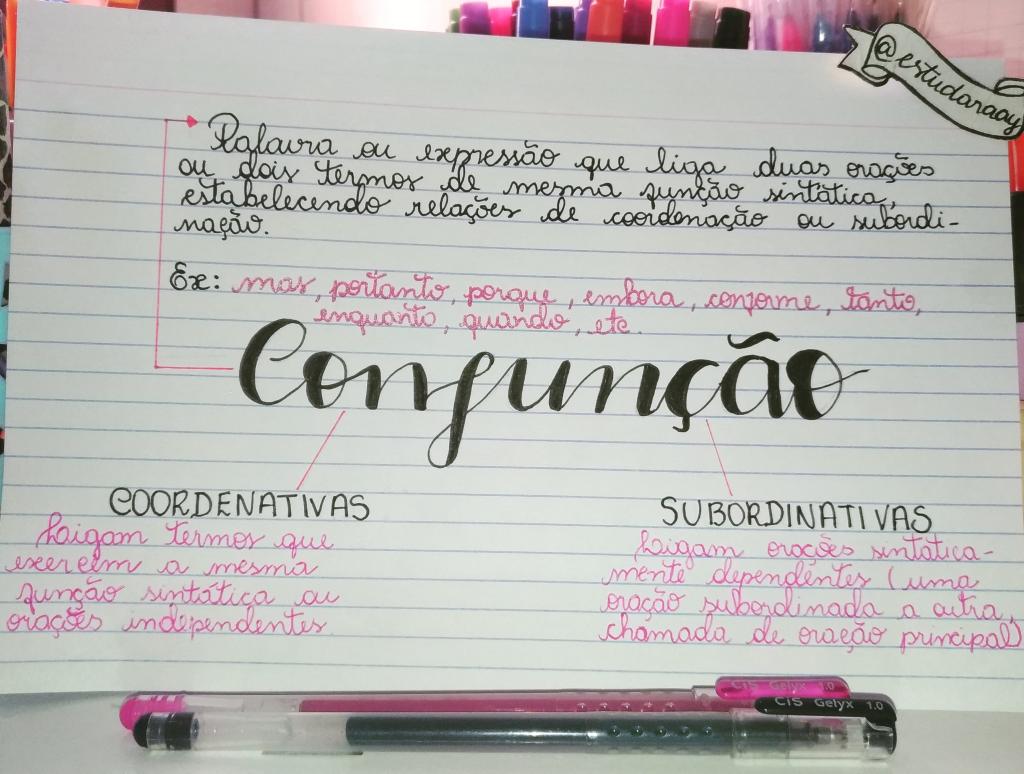 @estudaraay
Palavra ou expressão que liga duas orações
ou dois termos de mesma função sintática,
estabelecendo relações de coordenação ou subordi-
nação.
Ex: mas, portanto, porque, embora, conforme, tanto,
enquanto, quando, etc.
Conjunção
COORDENATIVAS
Ligam termos que
exercem a mesma
função sintática ou
orações independentes
SUBORDINATIVAS
Ligam orações sintática-
mente dependentes (uma
oração subordinada a outra,
chamada de oração principal)
CIS Gelyx 1.0
CIS Gelyx 1.0